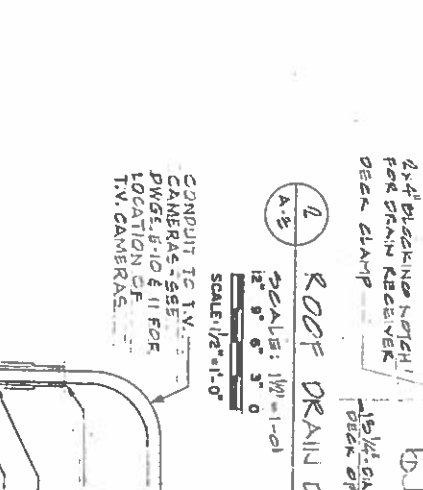 2x4" BLOCKING NOTCH
FOR DRAIN RECEIVER
DECK CLAMP
13 1/4" DIA
DECK OP
2
A-8
ROOF DRAIN D
SCALE: 1 1/2" = 1'-0"
12" 9" 6" 3" 0
SCALE: 1/2" = 1'-0"
CONDUIT TO T.V.
CAMERAS - SEE
DWGS. E-10 & 11 FOR
LOCATION OF
T.V. CAMERAS